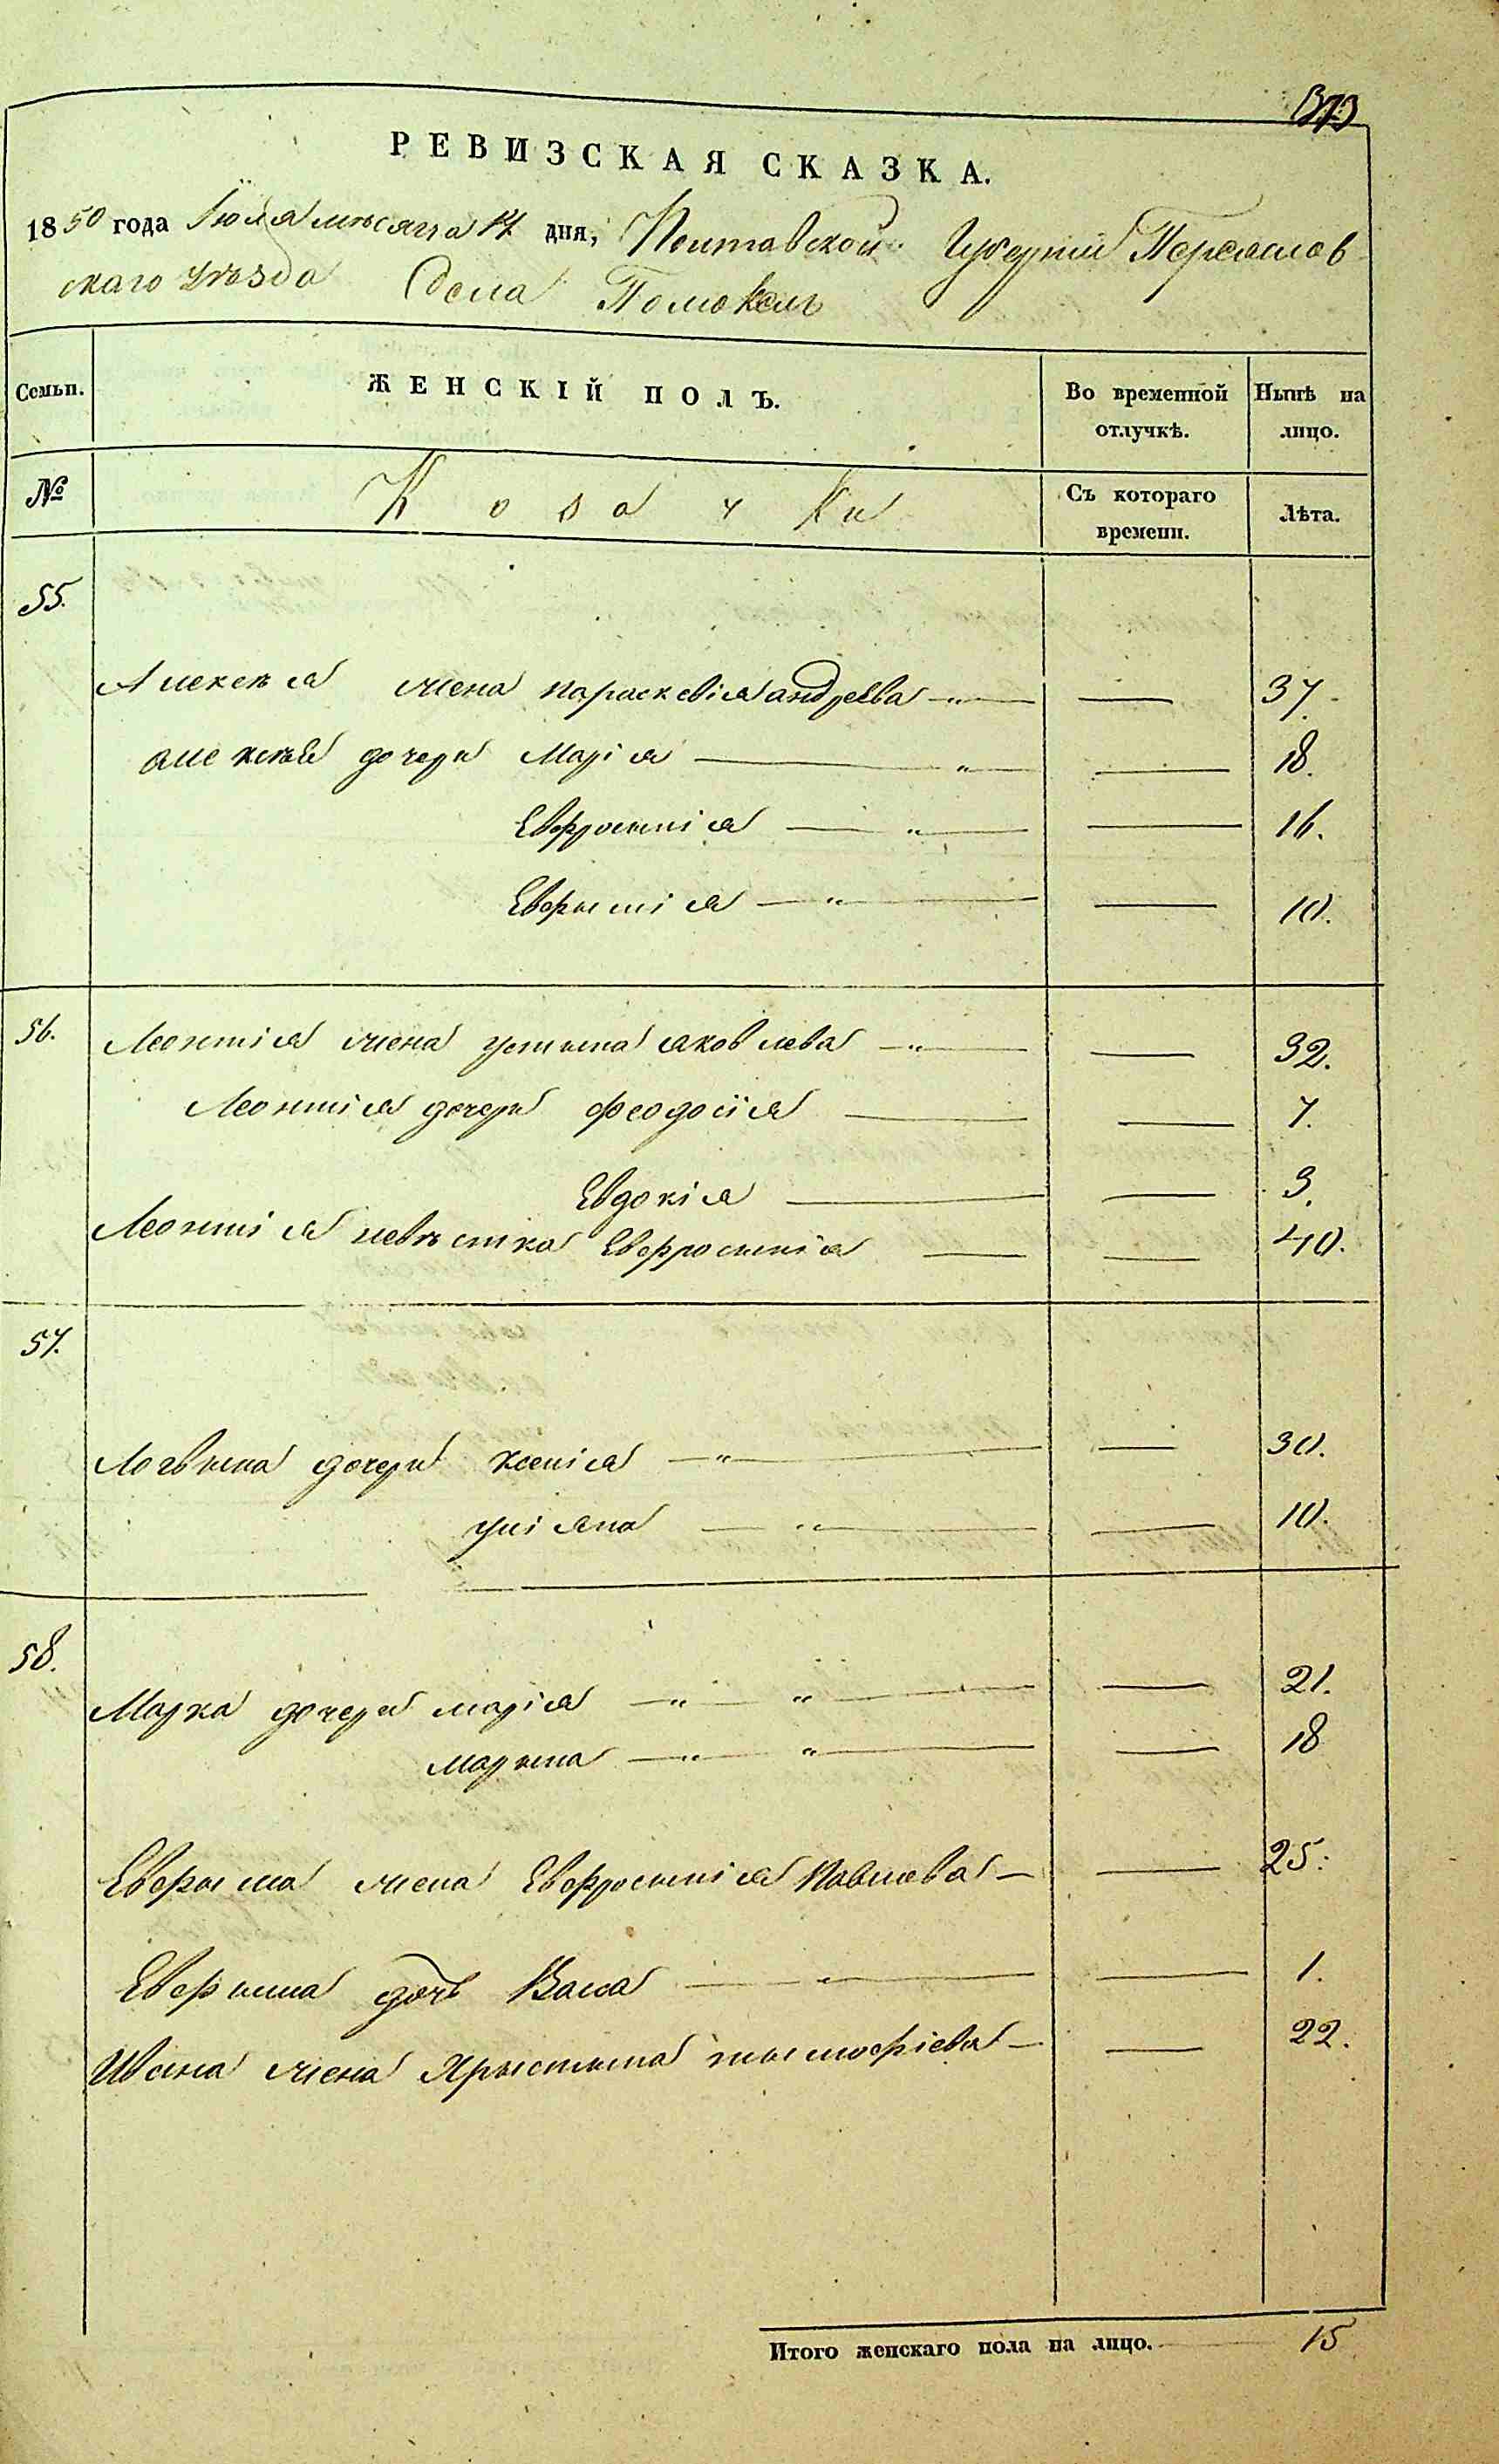 373
РЕВИЗСКАЯ СКАЗКА.
1850 года Іюля мѣсяца дня, Полтавской Губерніи Переяслов
скаго уѣзда Села Помоклъ
Семьи. ЖЕНСКІЙ ПОЛЪ. Во временной отлучкѣ. Нынѣ на лицо.
№ Козачки Съ котораго времени. Лѣта.
55.
Алексѣя жена параскевія андреева — " — — 37.
алексѣя дочери Марія — " — — 18.
Евфросинія — " — — 16.
Евфимія — " — — 10.
56. Леонтія жена устина яковлева — " — — 32.
Леонтія дочери феодосія — — 7.
Евдокія — — 3.
Леонтія невѣстка Евфросинія — — 40.
57.
Логвина дочери ксенія — " — — 30.
уліяна — " — — 10.
58.
Марка дочери марія — " — " — — 21.
марина — " — " — — 18
Евфима жена Евфросинія Павлева — — 25.
Евфима дочь Васа — " — — 1.
Ивана жена Хрыстына тымофіева — — 22.
Итого женскаго пола на лицо. — 15